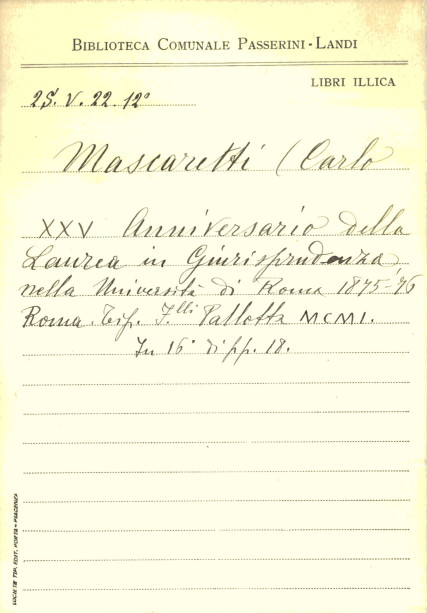 BIBLIOTECA COMUNALE PASSERINI-LANDI
LIBRI ILLICA
25. V. 22. 12°
Mascaretti (Carlo
XXV Anniversario della
Laurea in Giurisprudenza,
nella Università di Roma 1875-76
Roma. Tip. F.lli Pallotta MCMI.
In 16° di pp. 18.
TIP. EDIT. PORTA - PIACENZA